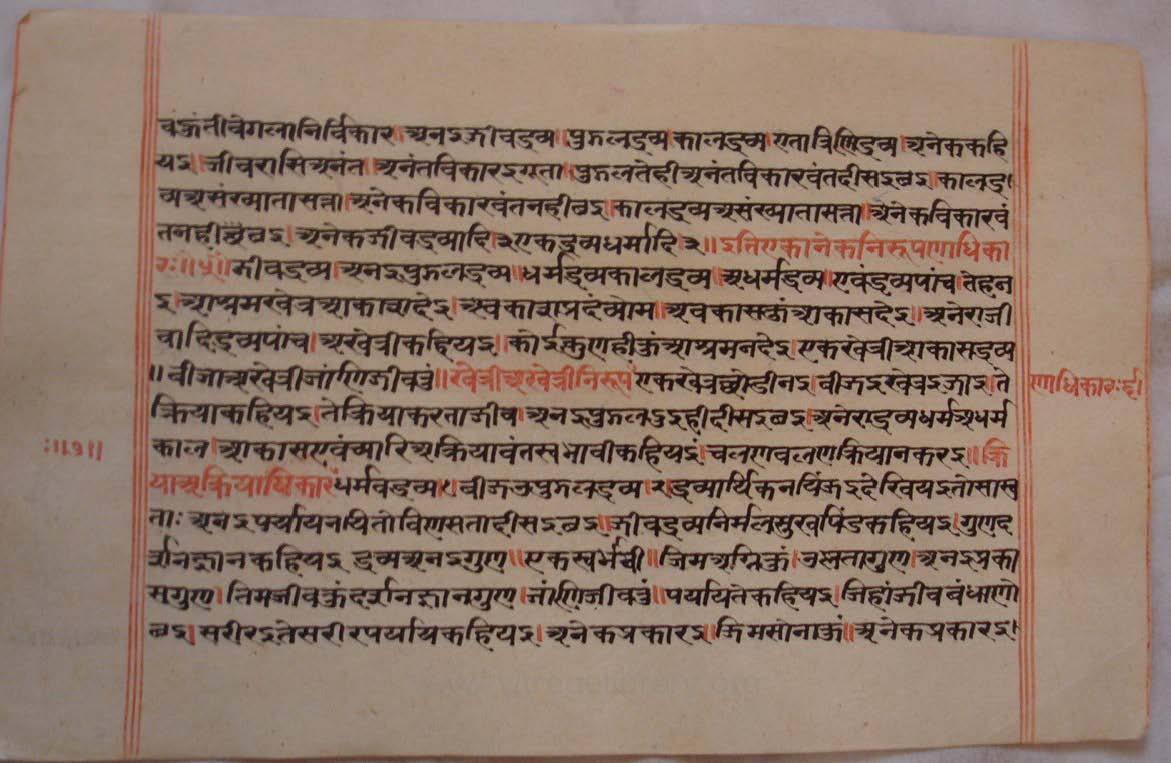 वंऊंतीवेगलानिर्विकार। अनइजीवद्रव्य। पुद्गलद्रव्य। कालद्रव्य। एतात्रिणिद्रव्य। अनेककहि
यइ। जीवरासिअनंत। अनंतविकारइएता। पुद्गलतेहीअनंतविकारवंतदीसइछइ। कालद्र
व्यअसंख्यातासत्ता। अनेकविकारवंतनहीछइ। कालद्रव्यअसंख्यातासत्ता। अनेकविकारवं
तनही छइ। अनेकजीवद्रव्यादि।३एकद्रव्यधर्मादि।३॥इतिएकानेकनिरूपणाधिका
रः॥५॥जीवद्रव्य। अनइपुद्गलद्रव्य॥धर्मद्रव्यकालद्रव्य। अधर्मद्रव्य। एवंद्रव्यपांच। तेहन
इ। आश्रमखेत्रआकाशदेइ। अवकाशप्रदंव्योम। अवकासळांआकासदेइ। अनेराजी
वादिद्रव्यपांच। अखेत्रीकहियइ। कोईकुणहीऊंआश्रमनदेइ। एकखेत्रीआकासद्रव्य
॥बीजाअखेत्रीजांणिजीवतुं॥खेत्रीअखेत्रीनिरूपएकखेत्रछोडीनइ। बीजइखेत्रइजाइ। ते
णाधिकारः६।
क्रियाकहियइ। तेक्रियाकरताजीव। अनइपुद्गलइहीदीसइछइ। अनेराद्रव्यधर्मअधर्म
काल। आकासएवंच्यारिअक्रियावंतस्वभावीकहियइं। चलणवलणक्रियानकरइ॥क्रि
ः॥७॥
याअक्रियाधिकारंधर्मवद्रव्य।१बीजउपुद्गलद्रव्य।२द्रव्यार्थिकनयिंजइदेखियइतोसास्व
ताः अनइपर्यायनयितोविणसतादीसइछइ। जीवद्रव्यनिर्मलसुखपिंडकहियइ। गुणद
र्शनज्ञानकहियइ द्रव्यअनइगुण॥एकस्वर्भची॥जिमअग्निऊं। उस्नतागुण। अनइप्रका
सगुण। तिमजीवऊंदर्शनज्ञानगुण। जांणिजीवतुं॥पर्यायतेकहियइ। जिहांजीवबंधाणो
छइ। सरीरइतेसरीरपर्यायकहियइ। अनेकप्रकारइ। जिमसोनाऊं॥अनेकप्रकारइ।